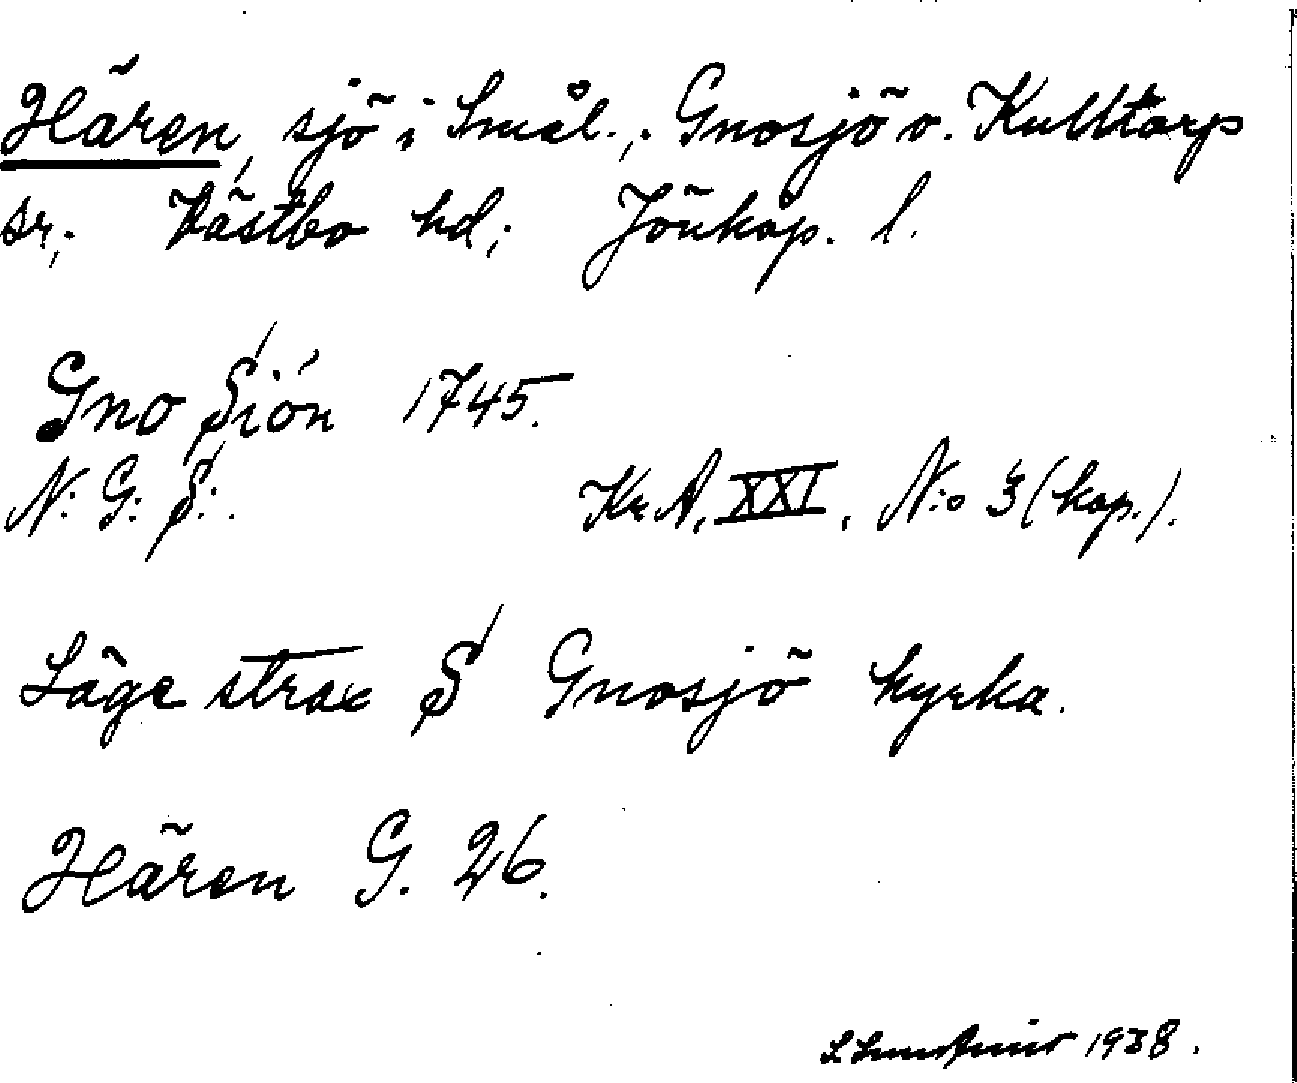 Hären, sjö i Smål.; Gnosjö o. Kulltorp
sr; Västbo hd; Jönköp. l.
Gno Siön 1745.
N: G: S:.
Kr. A. XXI. N:o 3 (kop.).
Läge strax S Gnosjö kyrka.
Hären G. 26.
1938.